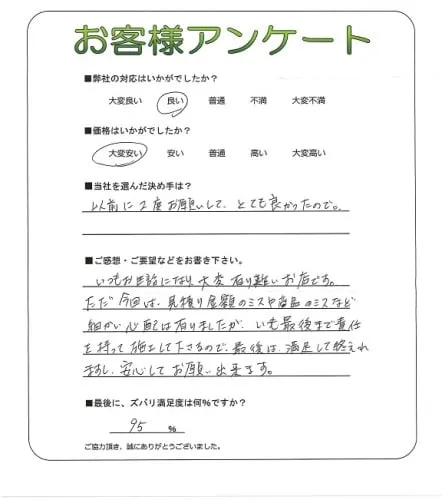 お客様アンケート
■弊社の対応はいかがでしたか?
大変良い 良い 普通 不満 大変不満
■価格はいかがでしたか?
大変安い 安い 普通 高い 大変高い
■当社を選んだ決め手は?
以前に2度お願いして、とても良かったので。
■ご感想・ご要望などをお書き下さい。
いつもお世話になり、大変有り難いお店です。
ただ今回は、見積り金額のミスや商品のミスなど
細かい心配は有りましたが、いつも最後まで責任
を持って施工して下さるので、最後は、満足して終えれ
ますし、安心してお願い出来ます。
■最後に、ズバリ満足度は何%ですか?
95 %
ご協力頂き、誠にありがとうございました。